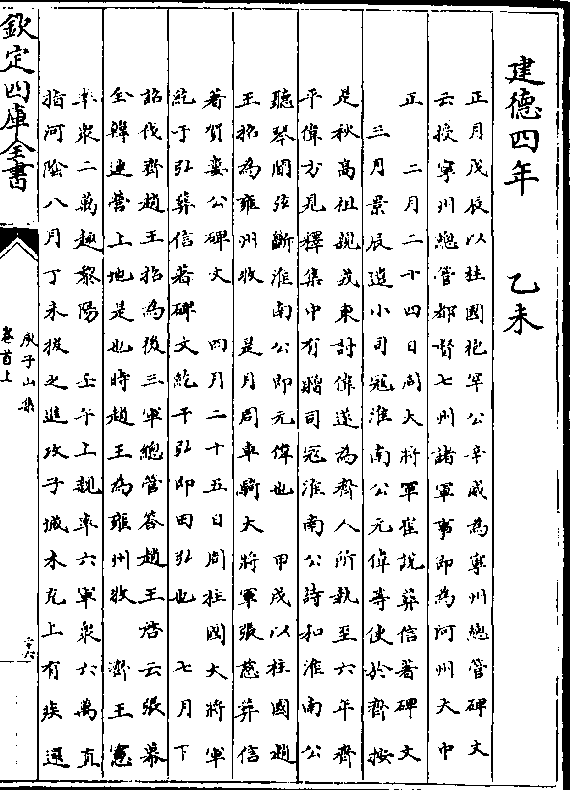 建德四年　乙未
正月戊辰以柱國袍罕公辛威為寧州總管碑文
云授寧州總管都督七州諸軍事即為河州大中
正　二月二十四日周大將軍崔說葬信著碑文
三月景辰遣小司寇淮南公元偉等使於齊按
是秋高祖親戎東討偉遂為齊人所執至六年齊
平偉方見釋集中有贈司寇淮南公詩和淮南公
聽琴聞弦斷淮南公即元偉也　甲戌以柱國趙
王招為雍州牧　是月周車騎大將軍張慈葬信
著賀婁公碑文　四月二十五日周柱國大將軍
紇干弘葬信著碑文紇干弘即田弘也　七月下
詔伐齊趙王招為後三軍總管答趙王啓云張幕
全韓連營上地是也時趙王為雍州牧　齊王憲
率衆二萬趣黎陽　壬午上親率六軍衆六萬直
指河陰八月丁未拔之進攻子城未克上有疾還
欽定四庫全書
庾子山集
卷首上
二十六